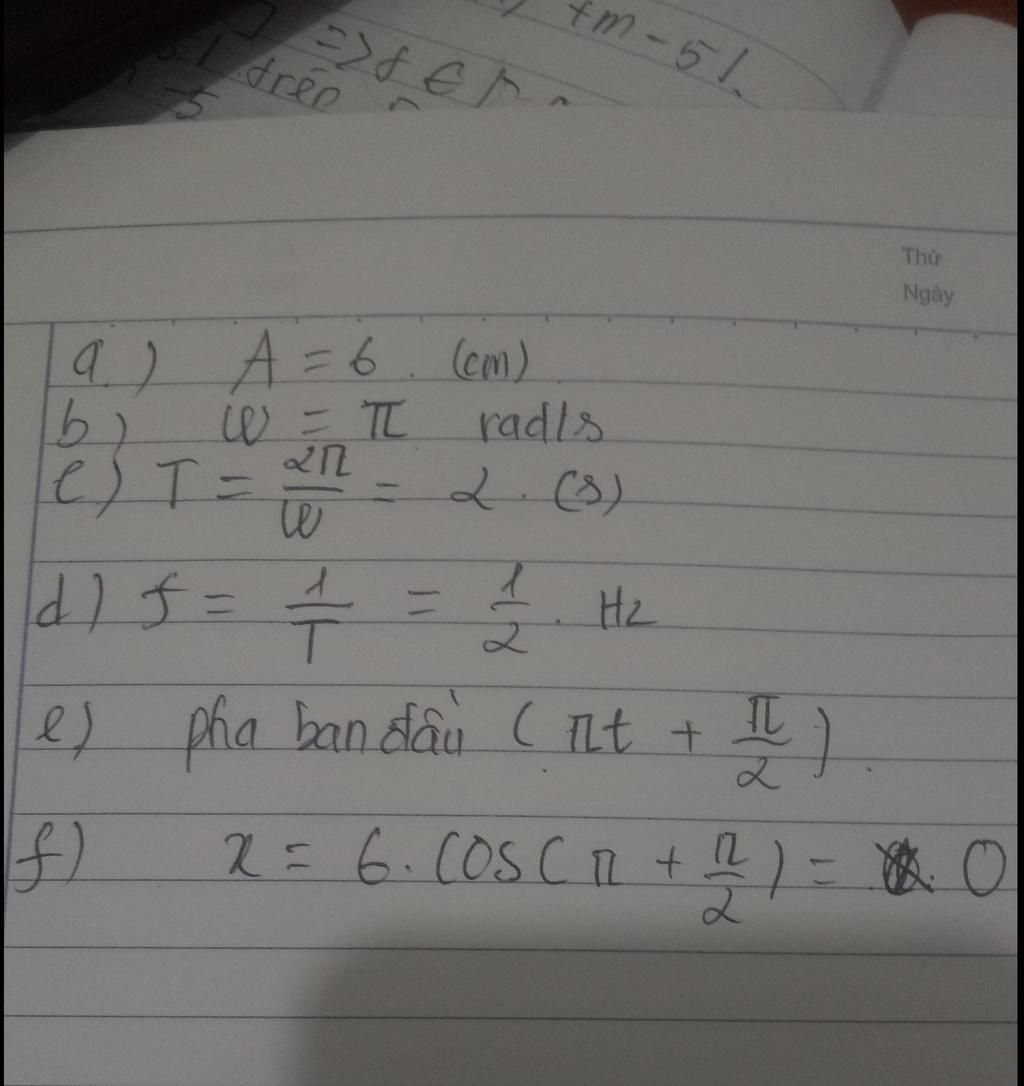 +m - 5!
=> f ∈
trên
-5
Thứ
Ngày
a.) A = 6 . (cm)
b) ω = π rad/s
c) T = 2π/ω = 2 . (s)
d) f = 1/T = 1/2 . Hz
e) pha ban đầu ( πt + π/2 ) .
f) x = 6 . cos( π + π/2 ) = 0